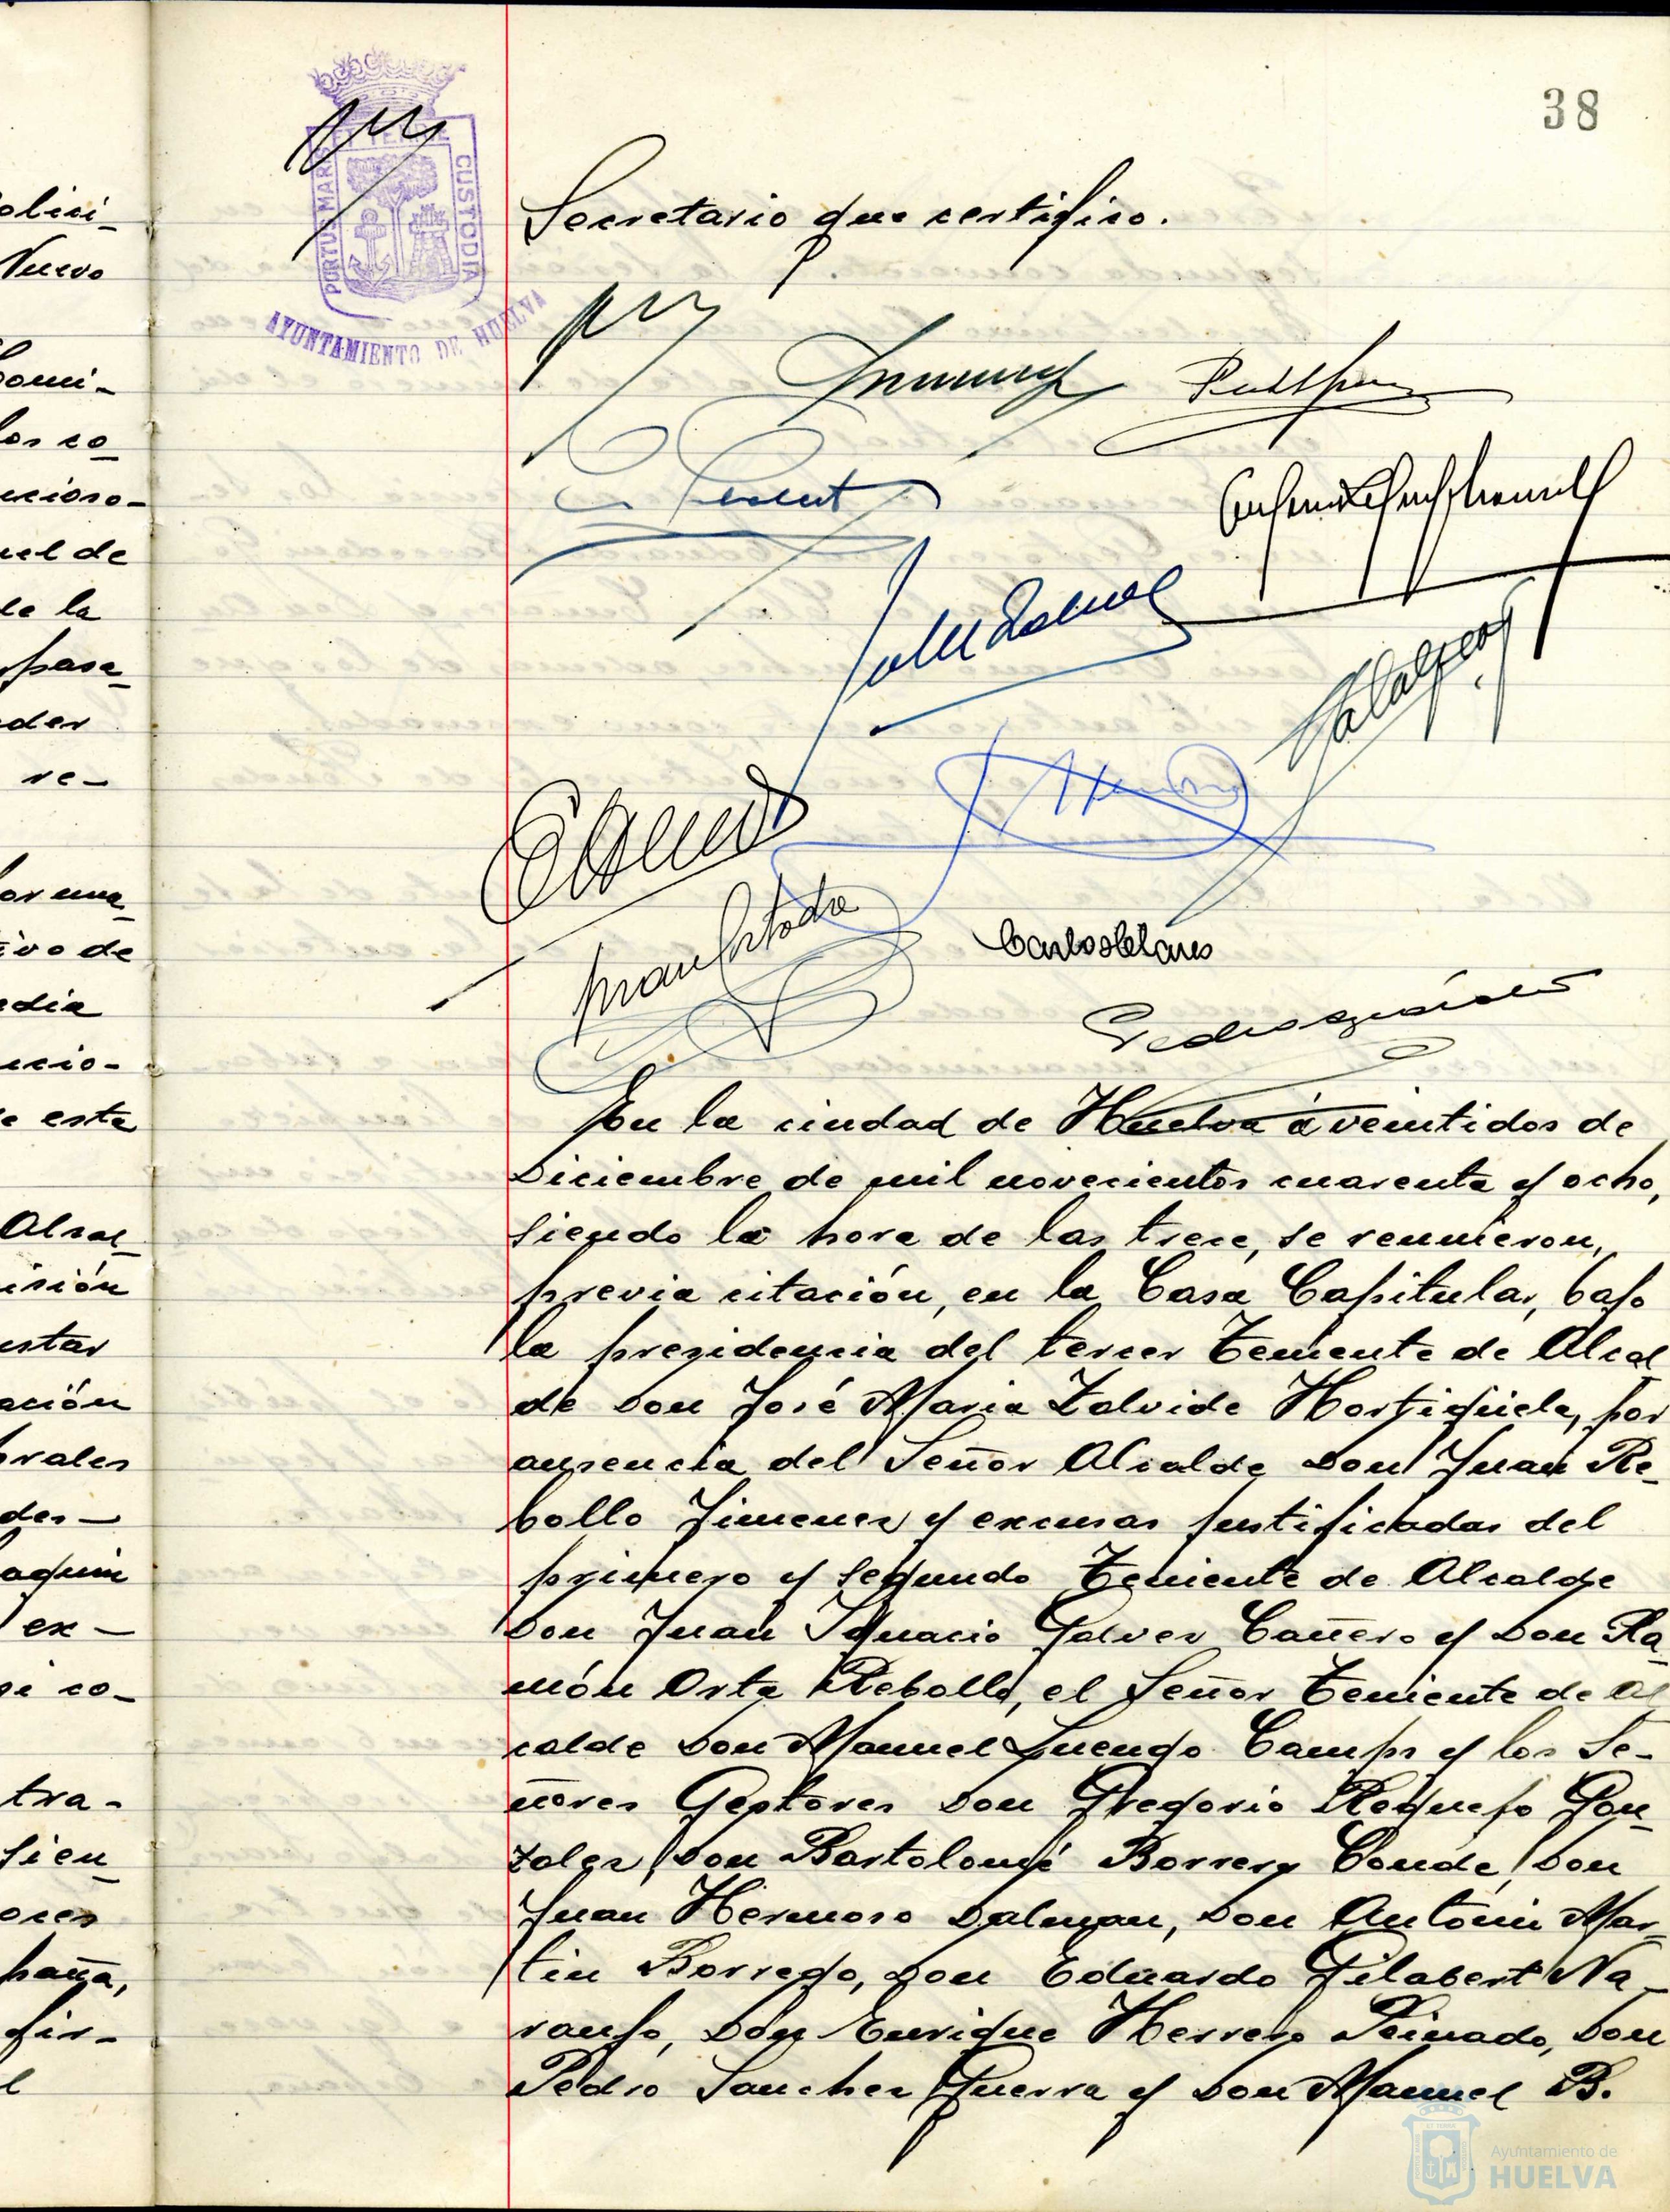 38
PORTUS MARIS ET TERRE CUSTODIA
AYUNTAMIENTO DE HUELVA
Secretario que certifico.
Juan Portada
Carlos
Pedro
En la ciudad de Huelva a veintidos de
Diciembre de mil novecientos cuarenta y ocho,
siendo la hora de las trece, se reunieron,
previa citación, en la Casa Capitular, bajo
la presidencia del tercer Teniente de Alcal
de Don José Maria Zalvide Hortigüela, por
ausencia del Señor Alcalde Don Juan Re-
bollo Jimenez y excusas justificadas del
primero y segundo Teniente de Alcalde
Don Juan Ignacio Galvez Cañero y Don Ra_
món Orta Rebollo, el Señor Teniente de Al
calde Don Manuel Luengo Camps y los Se-
ñores Gestores Don Gregorio Requejo Gon_
zalez, Don Bartolomé Borrero Conde, Don
Juan Hermoso Dalmau, Don Antonio Mar_
tin Borrego, Don Eduardo Filabert Na_
ranjo, Don Enrique Herrero Peinado, Don
Pedro Sanchez Guerra y Don Manuel B.
olici_
Nuevo
omi-
los co_
ucioso-
uel de
de la
pasa_
der
re-
or una_
ivo de
edia
ucio-
e este
Alcal_
isión
estar
ación
orales
des-
aquin
ex-
si co-
tra-
sien_
ores
paña,
fir-
l
Ayuntamiento de
HUELVA